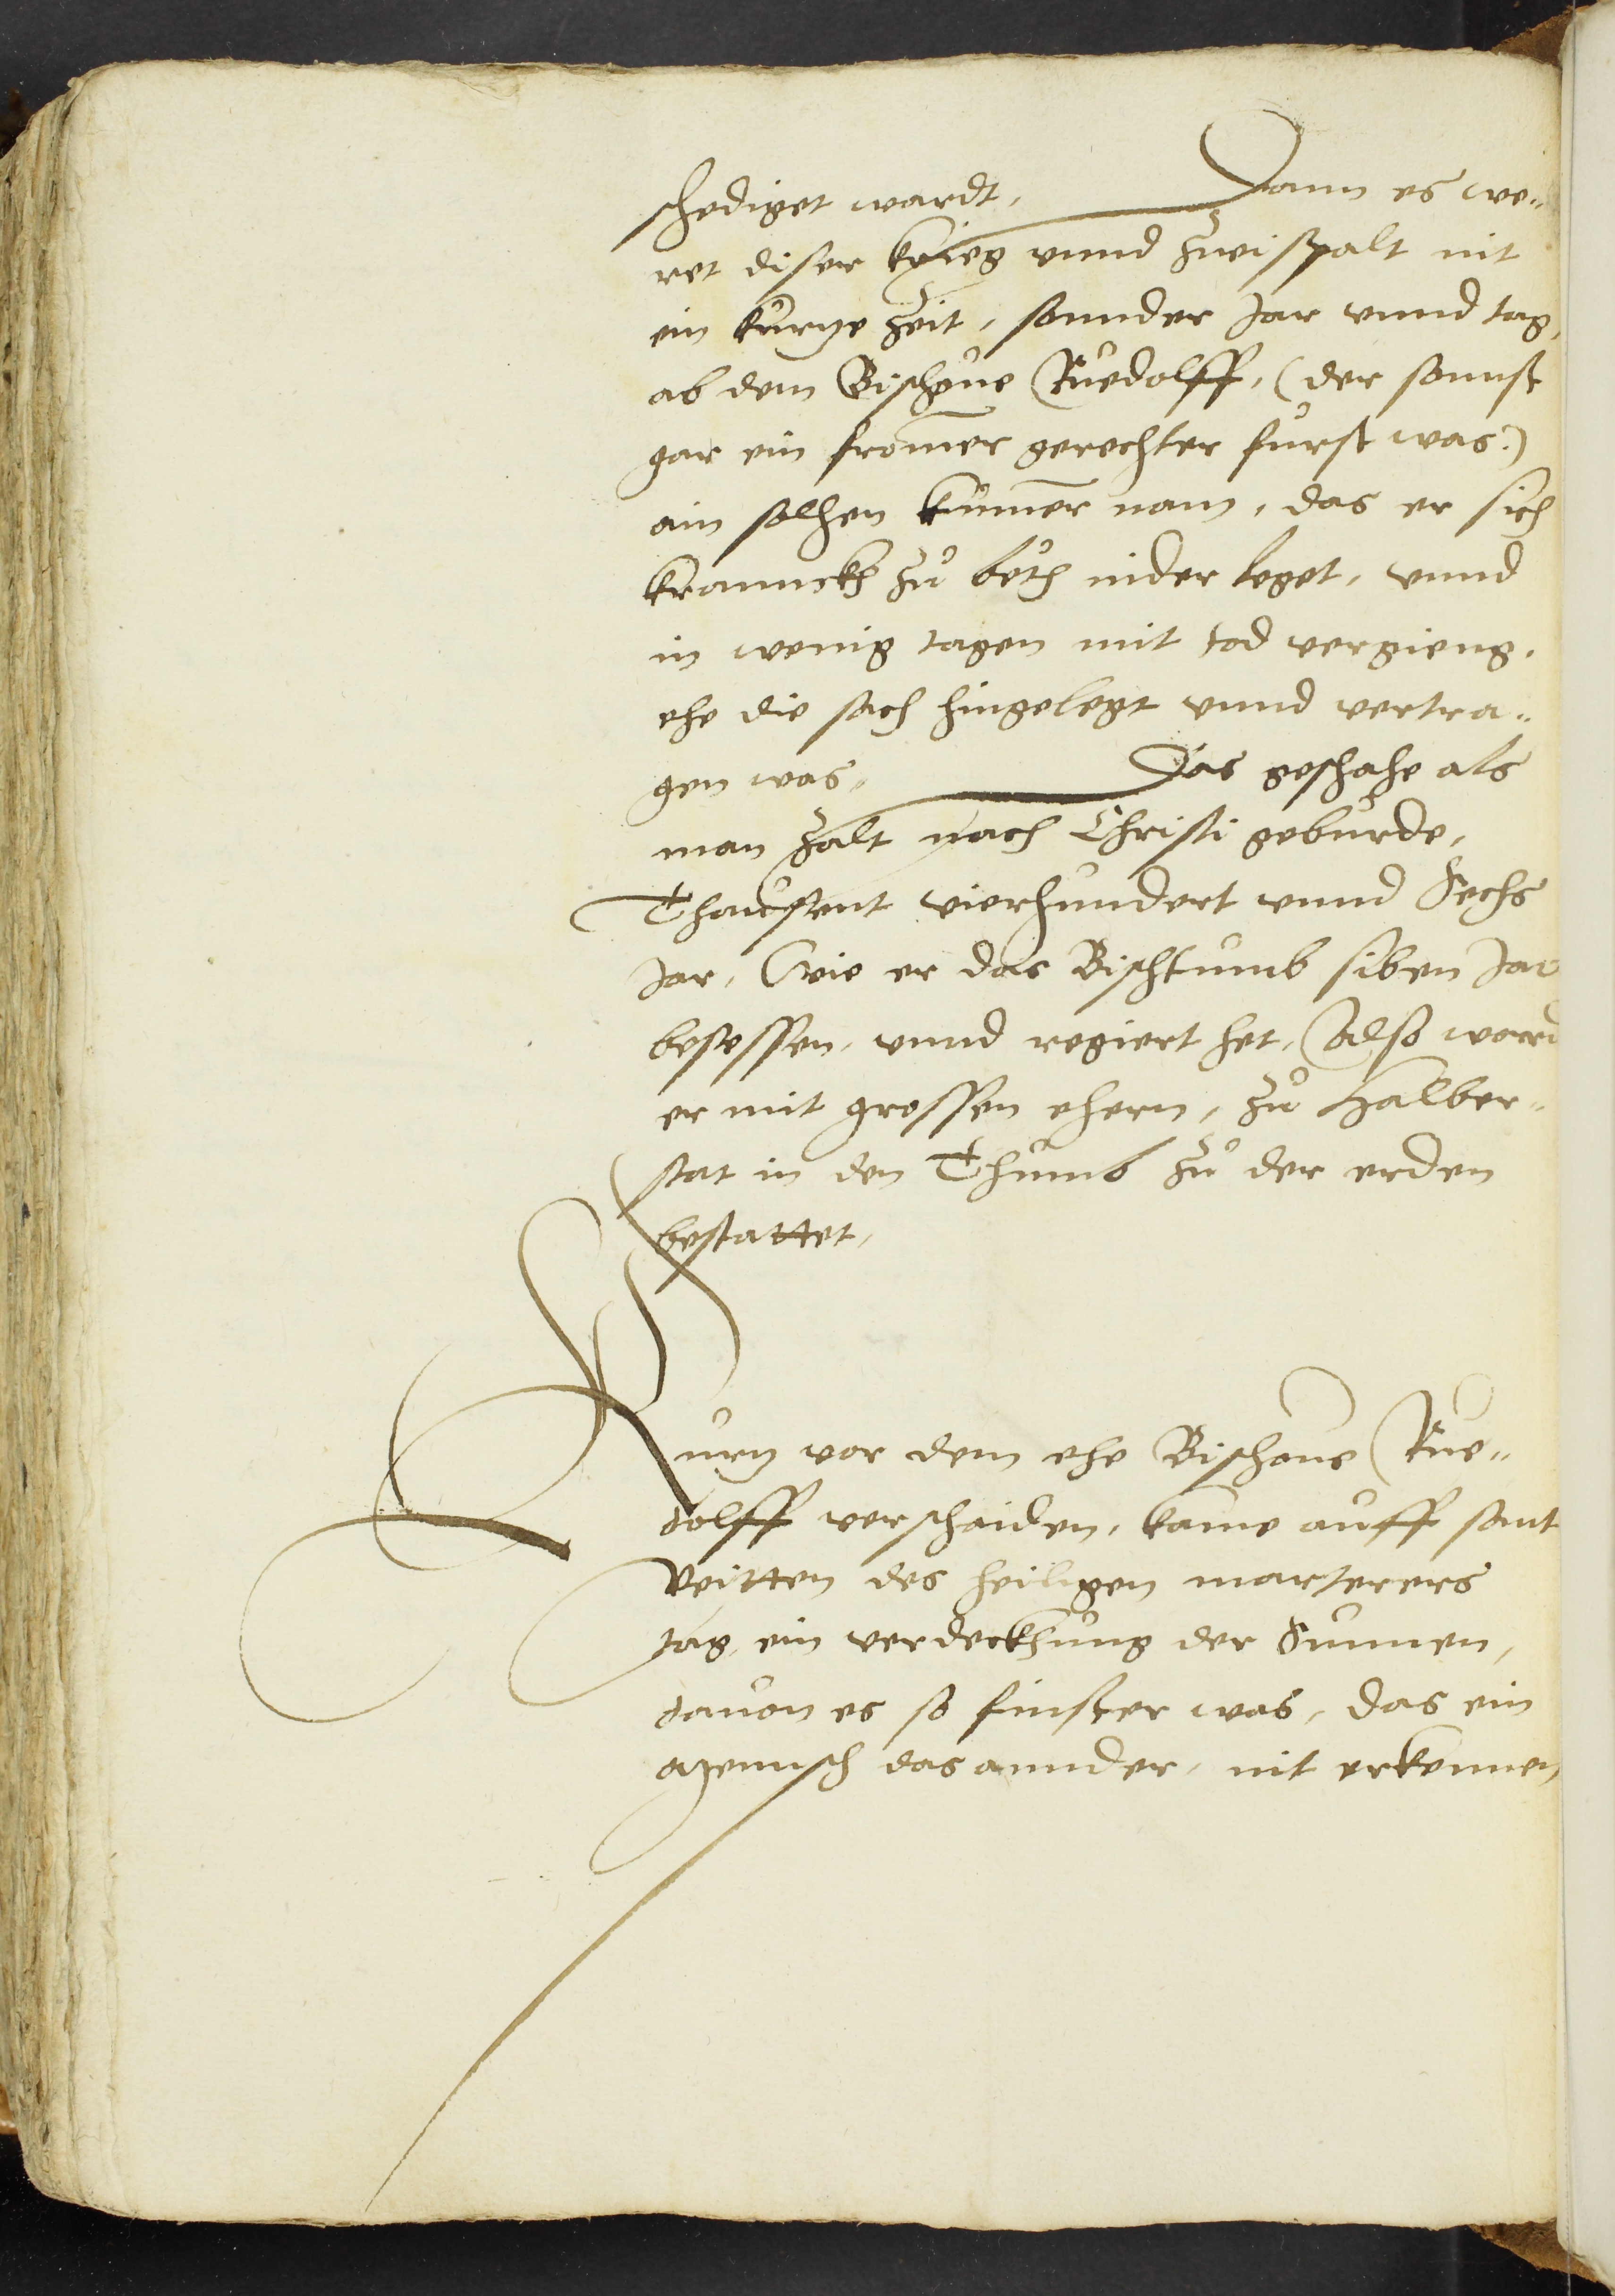 schediget wardt, Dann es we„
ret diser krieg vnnd zwispalt nit
ein kurtze zeit, sonnder Jar vnnd tag,
ab dem Bischoue Ruedolff, (der sonnst
gar ein from̄er gerechter fürst was:)
ain solhen kum̄er nam, das er sich
krannckh zů beth nider leget, vnnd
in wenig tagen mit tod vergieng,
ehe die sach hingelegt vnnd vertra„
gen was, Das geschahe als
man zalt nach Christi geburde,
Thausent vierhundert vnnd Sechs
Jar, Wie er das Bischtumb siben Jar
besessen, vnnd regiert het, Also ward
er mit grossen ehern, zů Halber„
stat in den Thumb zů der erden
bestattet,
Kurtz vor dem ehe Bischoue Rue„
dolff verschaiden, kame auff sant
Veitten des heiligen marterers
tag, ein verdeckhung der Sunnen,
dauon es so finster was, das ein
Mennsch das annder, nit erkennen